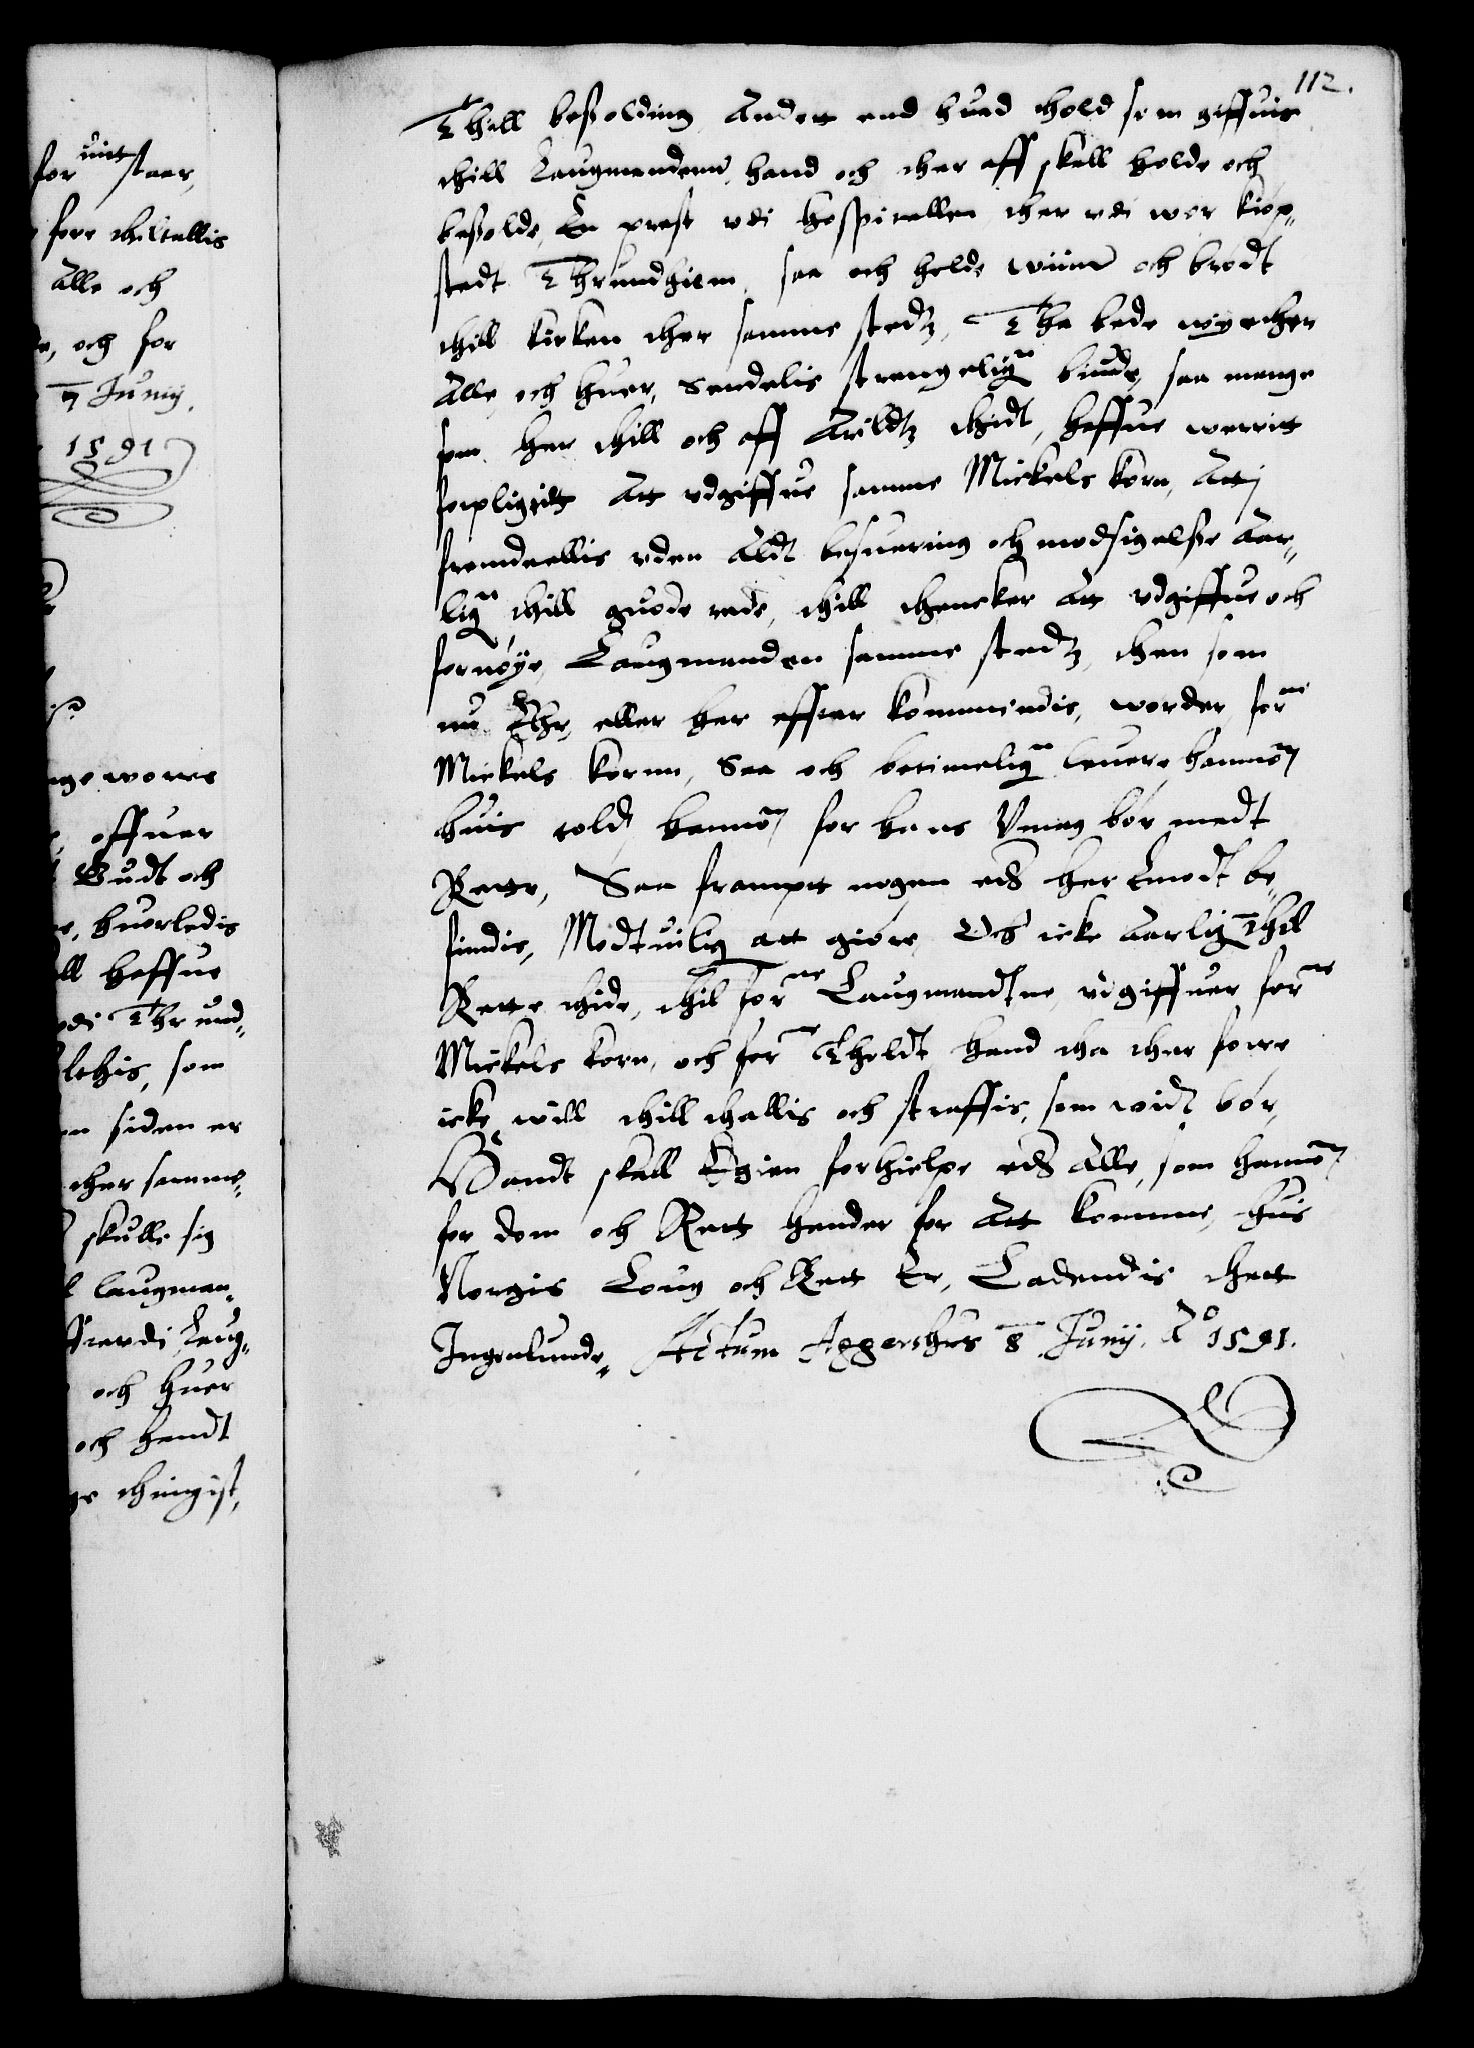 112.
Thill besolding Andett end huad thold som giffuis
thill Laugmandenn, hand och ther aff skall holde och
besolde, En prest vdi hospitallen ther vdi wor kiøp„
stedt Thrundhiem, saa och holde wiinn och brødt
thill kirken ther samme stedtz, Tha bede wy ether
Alle och huer, Sandelis strengelig biude, saa mange
som her thill och aff Arildtz thidt, haffue werrit
forpligtidt Att vdgiffue samme Mickels korn, Att j
fremdeellis vden Aldt besuering och modsigelsse Aar„
lig thill guode rede, thill thencker Att vdgiffue och
fornøye, Laugmanden samme stedtz, then som
nu Ehr, eller her effter kommindis, worder, for:ne
Mickels kornn, Saa och betimelig leuere hannom
huis told, hannom for hans Vmag bør medt
Rette, Saa frampt nogen eders her Emodt be„
findis, Modtuilig att giøre, Och icke Aarlig Thil
Rette thide, thil for:ne Laugmandtne vdgiffuer for:ne
Mickels korn, och for:ne Tholdt hand tha ther forre
icke will thill thallis och straffis, som widt bør,
Handt skall Egien forhielpe eders Alle, som hannom
for dom och Rett hender for Att komme, huis
Norgis Loug och Rett Er, Ladendis thett
Ingenlunde, Actum Aggershus 8 Junij. A:o 1591.
for uit staar,
fore thiltallis
Alle och
och for
7 Junij.
1591
offuer
Budt och
huorledis
haffue
vdi Thrund„
som
siden er
ther samme
skulle sig
laugman„
Laug„
och huer
och handt
thingist,